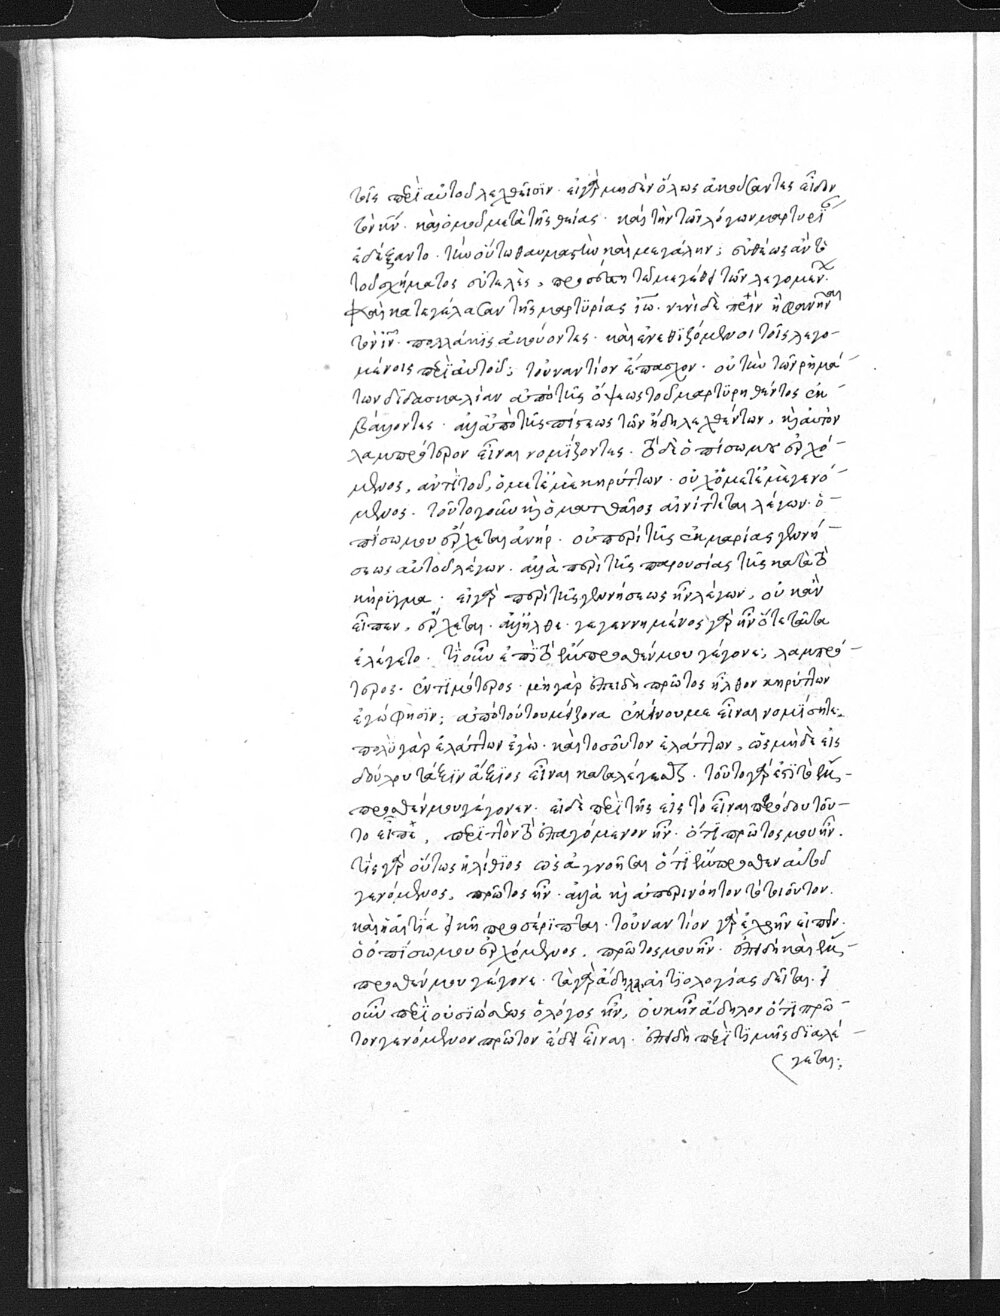 τοῖς περὶ αὐτοῦ λεχθεῖσιν. εἰ γὰρ μηδὲν ὅλως ἀκούσαντες εἶδον
τὸν χν. καὶ ὁμοῦ μετὰ τῆς θέας. καὶ τὴν τῶν λόγων μαρτυρί
ἐδέξαντο. τὴν οὕτω θαυμαστὴν καὶ μεγάλην; εὐθέως ἂν τὸ
τοῦ σχήματος εὐτελὲς, προσέστη τῶ μεγέθει τῶν λεγομέν
καὶ κατεγέλασαν τῆς μαρτυρίας ἰω. νυνὶ δὲ πρὶν ἢ φανῆναι
τὸν ιν. πολλάκις ἀκούοντες. καὶ ἐνεθιζόμενοι τοῖς λεγο-
μένοις περὶ αὐτοῦ; τοὐναντίον ἔπασχον. οὐ τὴν τῶν ῥημά-
των διδασκαλίαν ἀπὸ τῆς ὄψεως τοῦ μαρτυρηθέντος ἐκ-
βάλλοντες. ἀλλ' ἀπὸ τῆς πίστεως τῶν ἤδη λεχθέντων, καὶ αὐτὸν
λαμπρότερον εἶναι νομίζοντες. τὸ δὲ ὀπίσω μου ἐρχό-
μενος, ἀντὶ τοῦ, ὁ μετ' ἐμὲ κηρύττων. οὐχ ὁ μετ' ἐμὲ γενό-
μενος. τοῦτο γοῦν καὶ ὁ ματθαῖος αἰνίττεται λέγων. ὁ-
πίσω μου ἔρχεται ἀνήρ. οὐ περὶ τῆς ἐκ μαρίας γεννή-
σεως αὐτοῦ λέγων. ἀλλὰ περὶ τῆς παρουσίας τῆς κατὰ τὸ
κήρυγμα. εἰ γὰρ περὶ τῆς γεννήσεως ἦν λέγων, οὐκ ἂν
εἶπεν, ἔρχεται. ἀλλ' ἦλθε. γεγεννημένος γὰρ ἦν ὅτε ταῦτα
ἐλέγετο. τί οὖν ἐστὶ τὸ ἔμπροσθέν μου γέγονε; λαμπρό-
τερος. ἐντιμότερος. μὴ γὰρ ἐπειδὴ πρῶτος ἦλθον κηρύττων
ἐγώ φησιν; ἀπὸ τούτου μείζονα ἐκείνου με εἶναι νομίσητε.
πολὺ γὰρ ἐλάττων ἐγὼ. καὶ τοσοῦτον ἐλάττων, ὡς μηδὲ εἰς
δούλου τάξιν ἄξιος εἶναι καταλέγεσθαι. τοῦτο γάρ ἐστι τὸ ἔμ-
προσθέν μου γέγονεν. εἰ δὲ περὶ τῆς εἰς τὸ εἶναι προόδου τοῦ-
το εἶπε, περιττὸν τὸ ἐπαγόμενον ἦν. ὅτι πρῶτος μου ἦν.
τίς γὰρ οὕτως ἠλίθιος ὡς ἀγνοῆσαι ὅτι ἔμπροσθεν αὐτοῦ
γενόμενος, πρῶτος ἦν. ἀλλὰ καὶ ἀπερινόητον τὸ τοιοῦτον.
καὶ ἡ αἰτία εἰκῆ προσέρριπται. τοὐναντίον γὰρ ἐχρῆν εἰπεῖν.
ὁ ὀπίσω μου ἐρχόμενος, πρῶτος μου ἦν. ἐπειδὴ καὶ ἔμ-
προσθέν μου γέγονε. τὰ γὰρ ἄδηλα αἰτιολογίας δεῖται. εἰ
οὖν περὶ οὐσιώσεως ὁ λόγος ἦν, οὐκ ἦν ἄδηλον ὅτι πρῶ-
τον γενόμενον πρῶτον ἔδει εἶναι. ἐπειδὴ περὶ τιμῆς διαλέ-
γεται: